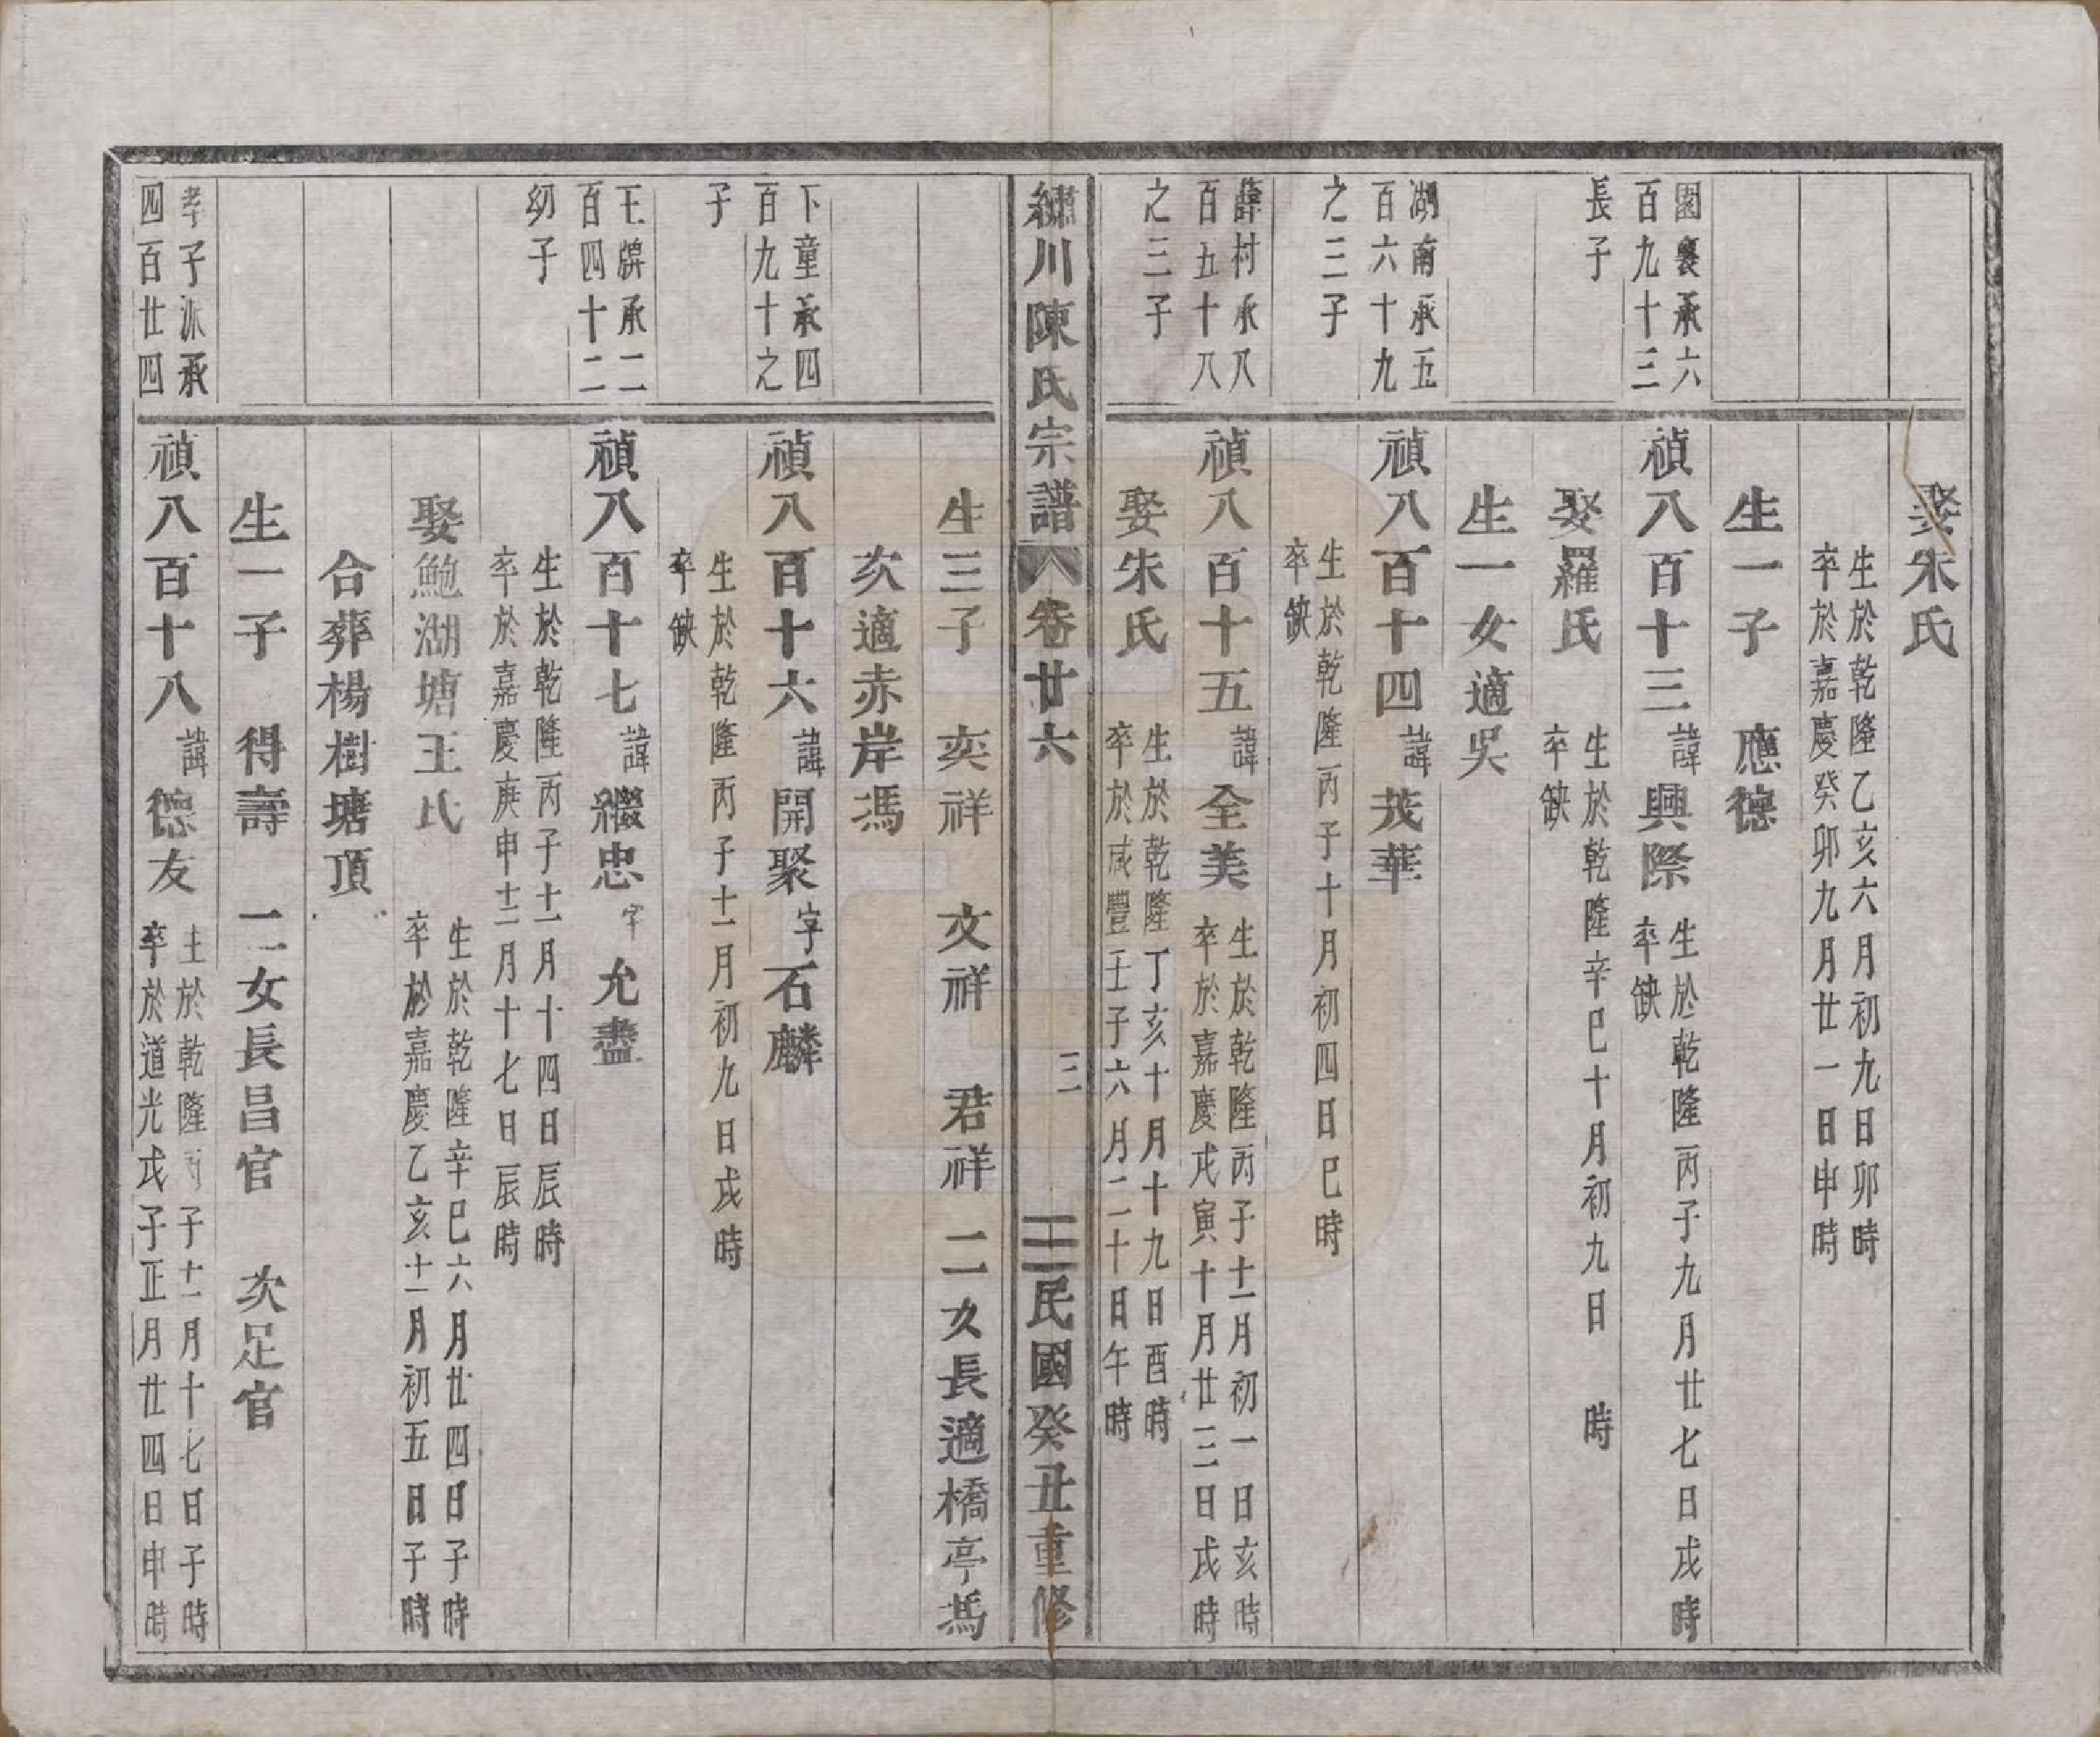 娶朱氏
生於乾隆乙亥六月初九日卯時
卒於嘉慶癸卯九月廿一日申時
生一子　應德
園裏承六
百九十三
長子
禎八百十三諱興際
生於乾隆丙子九月廿七日戌時
卒缺
娶羅氏
生於乾隆辛巳十月初九日　時
卒缺
生一女適吳
湖南承五
百六十九
之三子
禎八百十四諱茂華
生於乾隆丙子十月初四日巳時
卒缺
薛村承八
百五十八
之三子
禎八百十五諱全美
生於乾隆丙子十二月初一日亥時
卒於嘉慶戊寅十月廿三日戌時
娶朱氏
生於乾隆丁亥十月十九日酉時
卒於咸豐壬子六月二十日午時
繡川陳氏宗譜　卷廿六　三　民國癸丑重修
生三子　奕祥　文祥　君祥　二女長適橋亭馮
次適赤岸馮
下童承四
百九十之
子
禎八百十六諱開聚字石麟
生於乾隆丙子十一月初九日戌時
卒缺
王牌承二
百四十二
幼子
禎八百十七諱繼忠字允盡
生於乾隆丙子十一月十四日辰時
卒於嘉慶庚申十二月十七日辰時
娶鮑湖塘王氏
生於乾隆辛巳六月廿四日子時
卒於嘉慶乙亥十一月初五日子時
合葬楊樹塘頂
生一子　得壽　二女長昌官　次足官
孝子派承
四百廿四
禎八百十八諱德友
生於乾隆丙子十二月十七日子時
卒於道光戊子正月廿四日申時